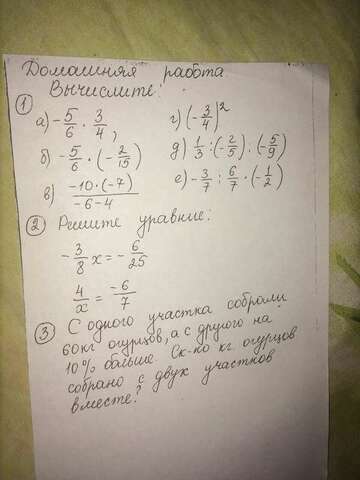 Домашняя работа.
Вычислите:
① а) -5/6 · 3/4, г) (-3/4)²
б) -5/6 · (-2/15) д) 1/3 : (-2/5) · (-5/9)
в) -10·(-7)/-6-4 е) -3/7 : 6/7 · (-1/2)
② Решите уравние:
-3/8 x = -6/25
4/x = -6/7
③ С одного участка собрали
60кг огурцов, а с другого на
10% больше. Ск-ко кг. огурцов
собрано с двух участков
вместе?